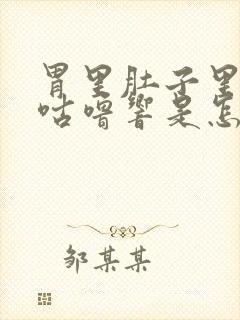 胃里肚子里
咕噜响是怎
邹某某